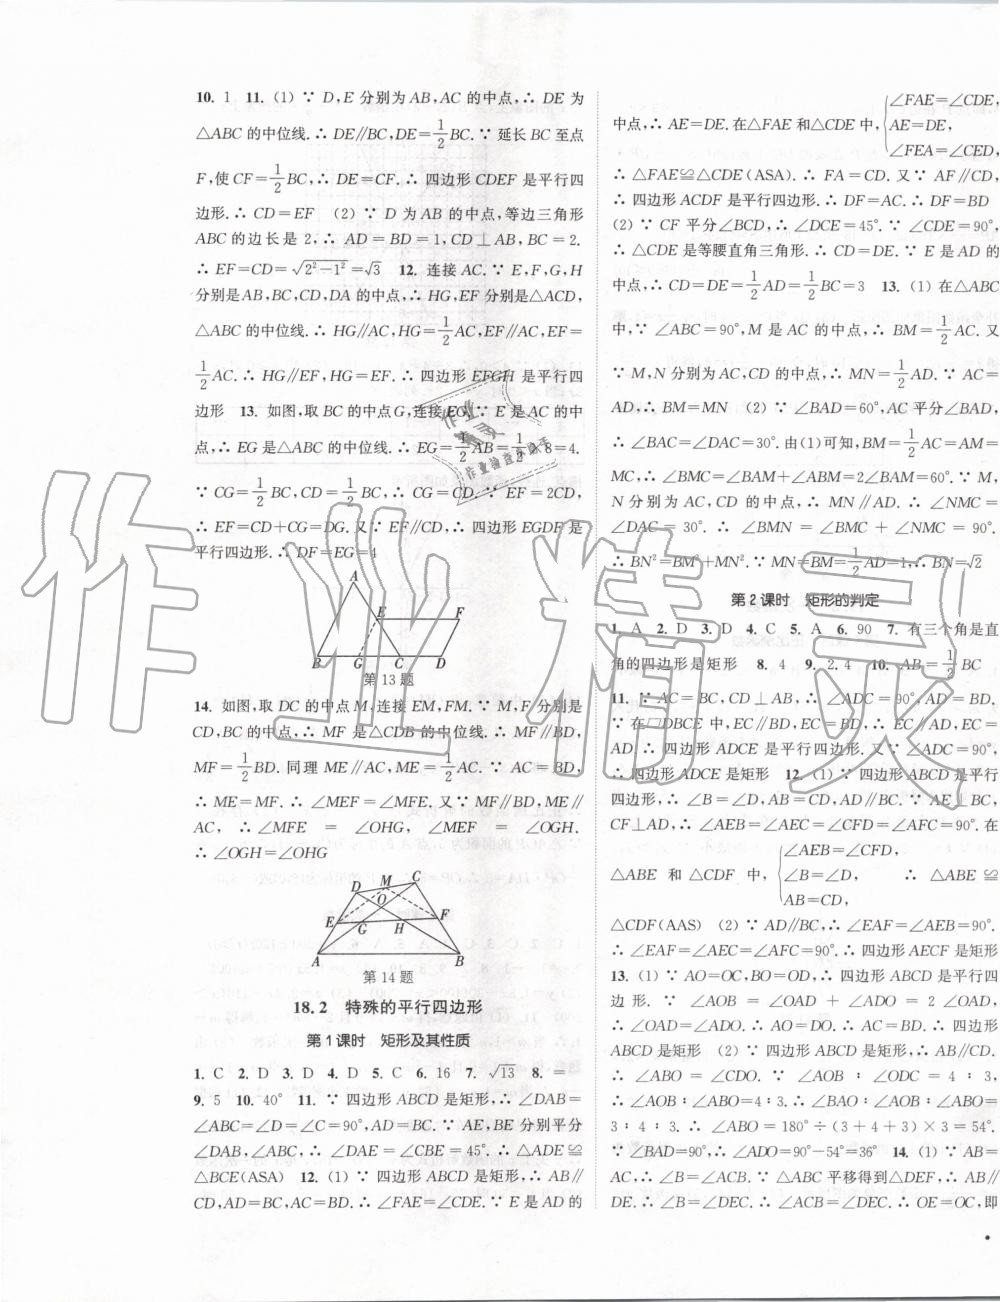 10. 1 11. (1) ∵ D,E 分别为 AB,AC 的中点,∴ DE 为
△ABC 的中位线.∴ DE∥BC,DE=1/2BC.∵ 延长 BC 至点
F,使 CF=1/2BC,∴ DE=CF.∴ 四边形 CDEF 是平行四
边形.∴ CD=EF (2) ∵ D 为 AB 的中点,等边三角形
ABC 的边长是 2,∴ AD=BD=1,CD⊥AB,BC=2.
∴ EF=CD=√(2²−1²)=√3 12. 连接 AC.∵ E,F,G,H
分别是AB,BC,CD,DA 的中点,∴ HG,EF 分别是△ACD,
△ABC 的中位线.∴ HG∥AC,HG=1/2AC,EF∥AC,EF=
1/2AC.∴ HG∥EF,HG=EF.∴ 四边形 EFGH 是平行四
边形 13. 如图,取 BC 的中点G,连接 EG.∵ E 是 AC 的中
点,∴ EG 是△ABC 的中位线.∴ EG=1/2AB=1/2×8=4.
∵ CG=1/2BC,CD=1/2BC,∴ CG=CD.∵ EF=2CD,
∴ EF=CD+CG=DG.又∵ EF∥CD,∴ 四边形 EGDF 是
平行四边形.∴ DF=EG=4
A
E
F
B
G
C
D
第 13 题
14. 如图,取 DC 的中点 M,连接 EM,FM.∵ M,F 分别是
CD,BC 的中点,∴ MF 是△CDB 的中位线.∴ MF∥BD,
MF=1/2BD.同理 ME∥AC,ME=1/2AC.∵ AC=BD,
∴ ME=MF.∴ ∠MEF=∠MFE.又∵ MF∥BD,ME∥
AC,∴ ∠MFE=∠OHG,∠MEF=∠OGH.
∴ ∠OGH=∠OHG
D
M
C
O
E
G
H
F
A
B
第 14 题
18.2 特殊的平行四边形
第 1 课时 矩形及其性质
1. C 2. D 3. D 4. D 5. C 6. 16 7. √13 8. =
9. 5 10. 40° 11. ∵ 四边形 ABCD 是矩形,∴ ∠DAB=
∠ABC=∠D=∠C=90°,AD=BC.∵ AE,BE 分别平分
∠DAB,∠ABC,∴ ∠DAE=∠CBE=45°.∴ △ADE≌
△BCE(ASA) 12. (1) ∵ 四边形 ABCD 是矩形,∴ AB∥
CD,AD=BC,∴ ∠FAE=∠CDE.∵ E 是 AD 的
中点,∴ AE=DE.在△FAE 和△CDE 中,{∠FAE=∠CDE,
AE=DE,
∠FEA=∠CED,
∴ △FAE≌△CDE(ASA).∴ FA=CD.又∵ AF∥CD,
∴ 四边形 ACDF 是平行四边形.∴ DF=AC.∴ DF=BD
(2) ∵ CF 平分∠BCD,∴ ∠DCE=45°.∵ ∠CDE=90°,
∴ △CDE 是等腰直角三角形.∴ CD=DE.∵ E 是 AD 的
中点,∴ CD=DE=1/2AD=1/2BC=3 13. (1) 在△ABC
中,∵ ∠ABC=90°,M 是 AC 的中点,∴ BM=1/2AC.又
∵ M,N 分别为 AC,CD 的中点,∴ MN=1/2AD.∵ AC=
AD,∴ BM=MN (2) ∵ ∠BAD=60°,AC 平分∠BAD,
∴ ∠BAC=∠DAC=30°.由(1)可知,BM=1/2AC=AM=
MC,∴ ∠BMC=∠BAM+∠ABM=2∠BAM=60°.∵ M,
N 分别为 AC,CD 的中点,∴ MN∥AD.∴ ∠NMC=
∠DAC=30°.∴ ∠BMN=∠BMC+∠NMC=90°.
∴ BN²=BM²+MN².∵ MN=BM=1/2AD=1,∴ BN=√2
第 2 课时 矩形的判定
1. A 2. D 3. D 4. C 5. A 6. 90 7. 有三个角是直
角的四边形是矩形 8. 4 9. 2.4 10. AB=1/2BC
11. ∵ AC=BC,CD⊥AB,∴ ∠ADC=90°,AD=BD.
∵ 在▱DBCE 中,EC∥BD,EC=BD,∴ EC∥AD,EC=
AD.∴ 四边形 ADCE 是平行四边形.又∵ ∠ADC=90°,
∴ 四边形 ADCE 是矩形 12. (1) ∵ 四边形 ABCD 是平行
四边形,∴ ∠B=∠D,AB=CD,AD∥BC.∵ AE⊥BC,
CF⊥AD,∴ ∠AEB=∠AEC=∠CFD=∠AFC=90°.在
△ABE 和△CDF 中,{∠AEB=∠CFD,
∠B=∠D,
AB=CD,
∴ △ABE≌
△CDF(AAS) (2) ∵ AD∥BC,∴ ∠EAF=∠AEB=90°.
∴ ∠EAF=∠AEC=∠AFC=90°.∴ 四边形 AECF 是矩形
13. (1) ∵ AO=OC,BO=OD,∴ 四边形 ABCD 是平行四
边形.∵ ∠AOB=∠OAD+∠ADO=2∠OAD,
∴ ∠OAD=∠ADO.∴ AO=DO.∴ AC=BD.∴ 四边形
ABCD 是矩形 (2) ∵ 四边形 ABCD 是矩形,∴ AB∥CD.
∴ ∠ABO=∠CDO.∵ ∠AOB:∠ODC=4:3,
∴ ∠AOB:∠ABO=4:3.∴ ∠BAO:∠AOB:∠ABO=
3:4:3.∴ ∠ABO=180°÷(3+4+3)×3=54°.
∵ ∠BAD=90°,∴ ∠ADO=90°−54°=36° 14. (1) ∵ AB=
AC,∴ ∠B=∠ACB.∵ △ABC 平移得到△DEF,∴ AB∥
DE.∴ ∠B=∠DEC.∴ ∠ACB=∠DEC.∴ OE=OC,即
作业精灵